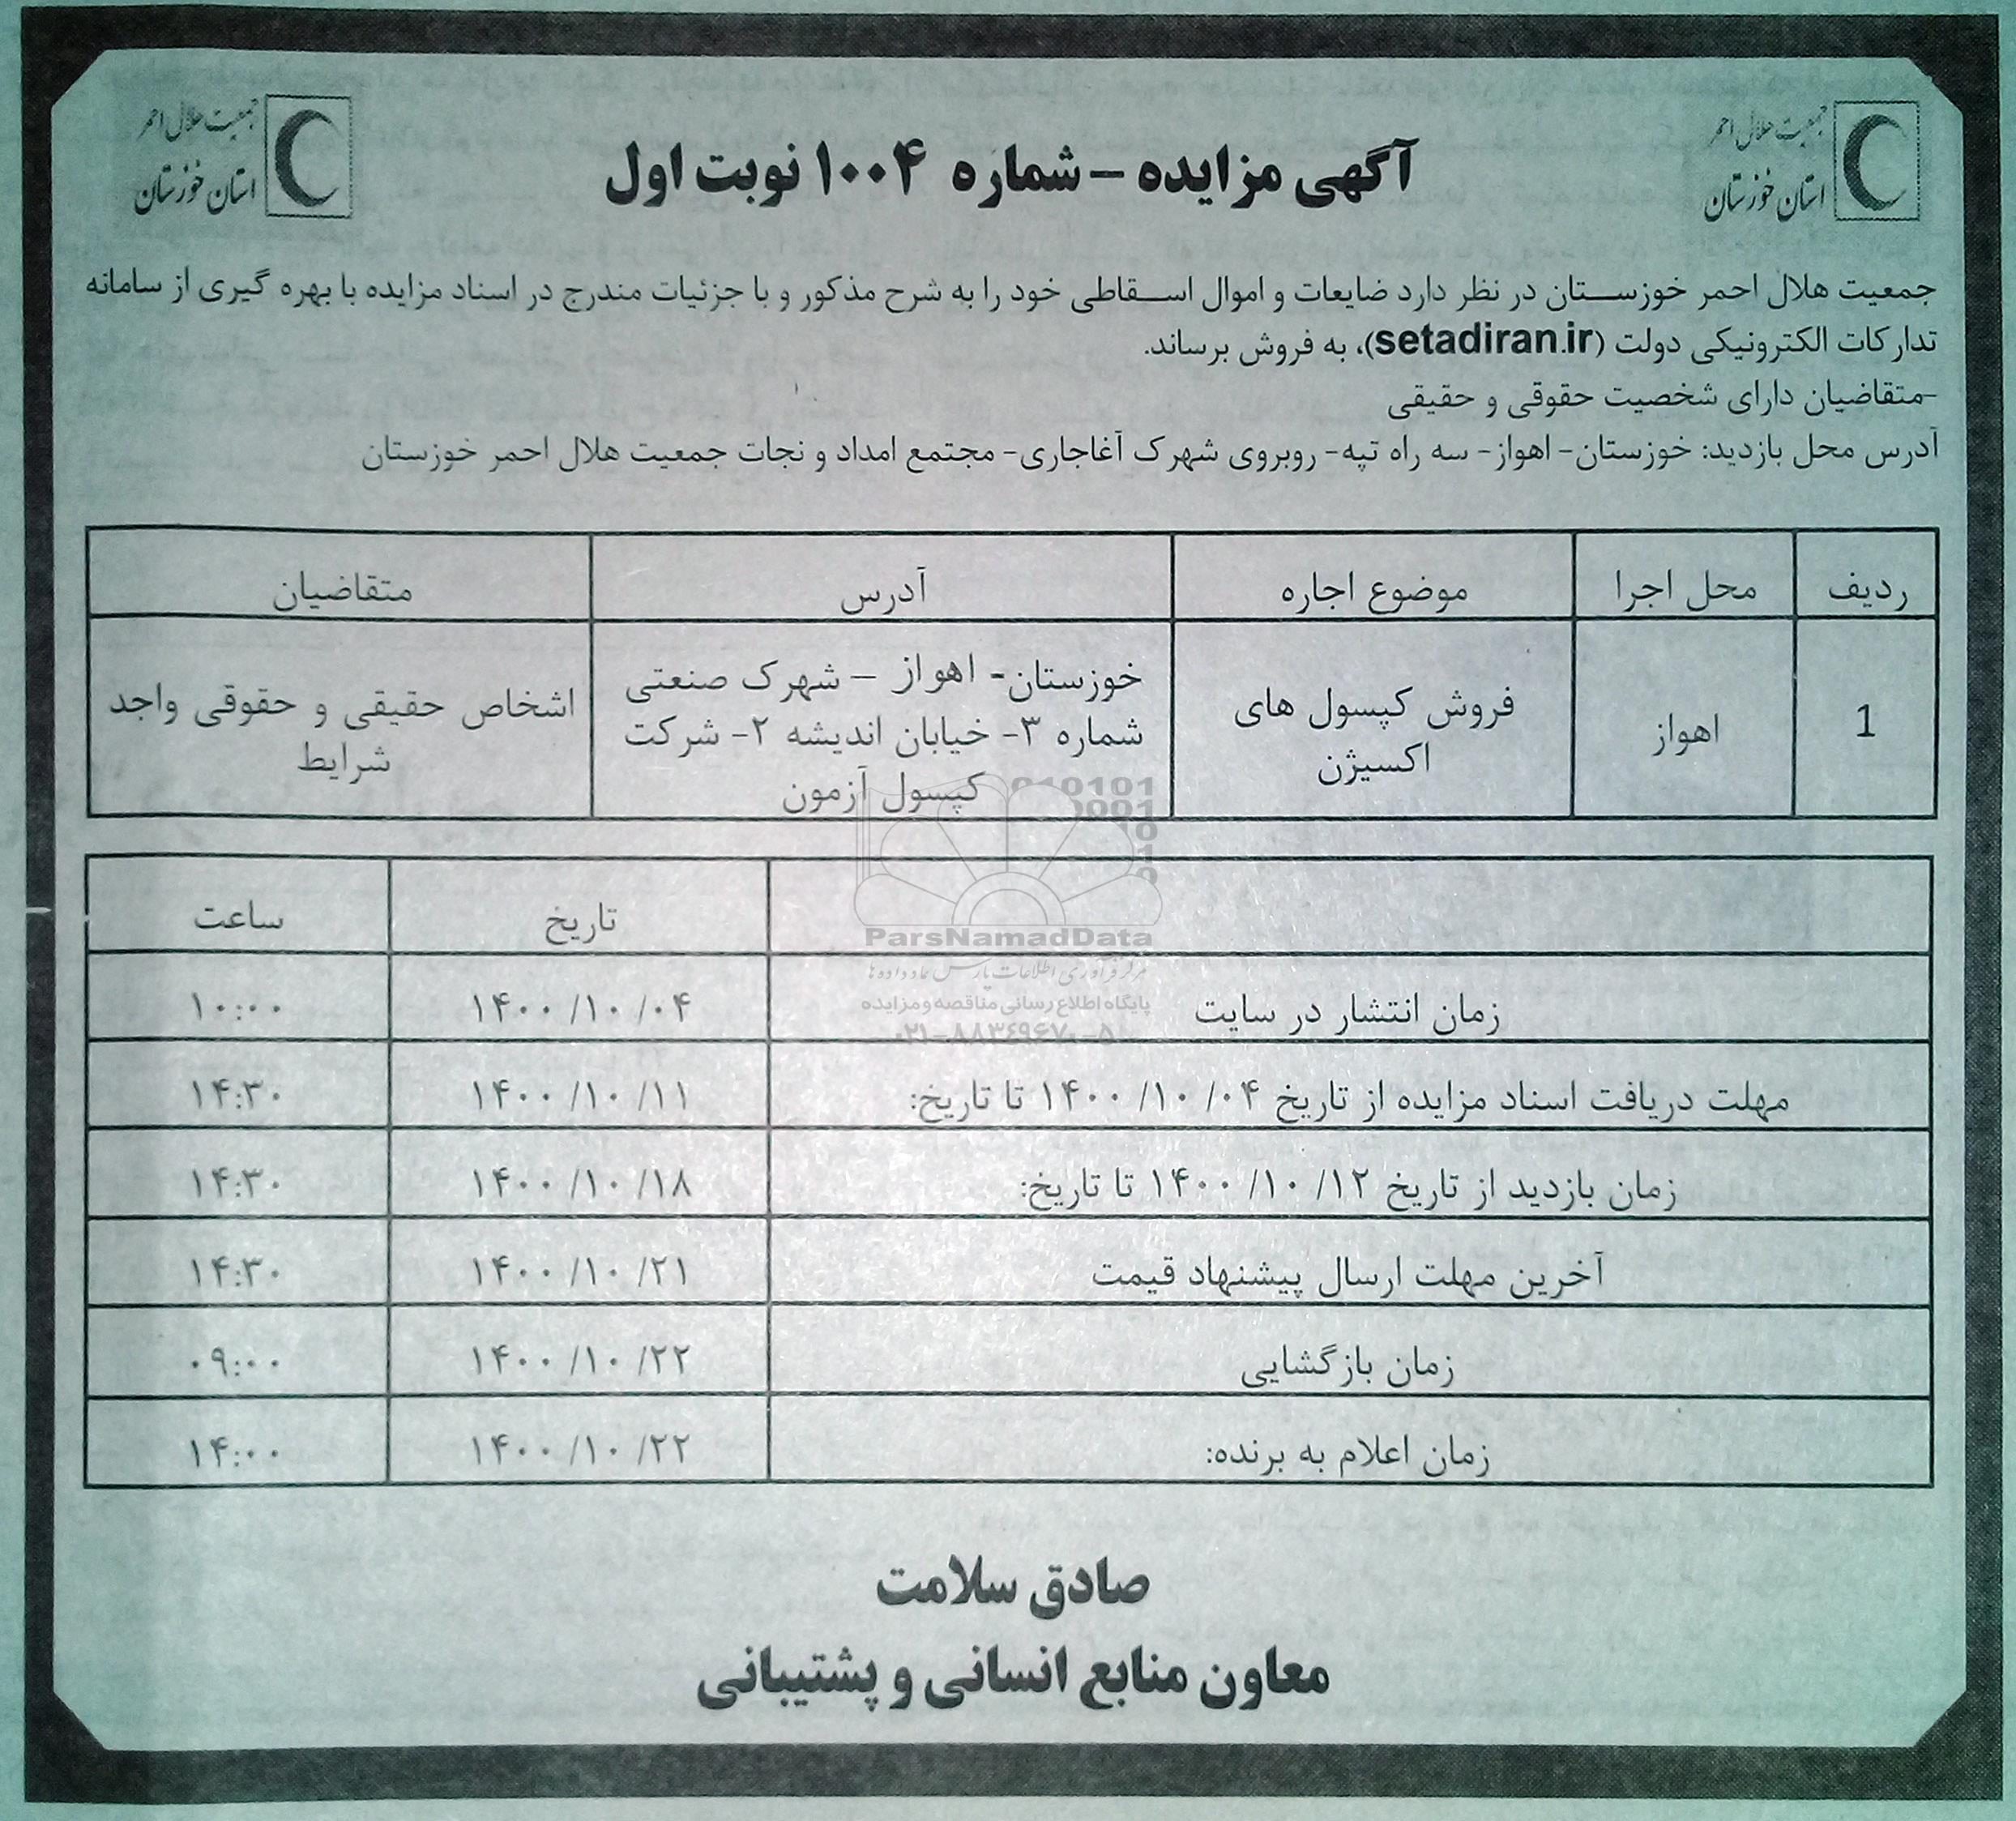 جمعیت هلال احمر
استان خوزستان
آگهی مزایده – شماره ۱۰۰۴ نوبت اول
جمعیت هلال احمر
استان خوزستان
جمعیت هلال احمر خوزستان در نظر دارد ضایعات و اموال اسقاطی خود را به شرح مذکور و با جزئیات مندرج در اسناد مزایده با بهره گیری از سامانه
تدارکات الکترونیکی دولت (setadiran.ir)، به فروش برساند.
-متقاضیان دارای شخصیت حقوقی و حقیقی
آدرس محل بازدید: خوزستان- اهواز- سه راه تپه- روبروی شهرک آغاجاری- مجتمع امداد و نجات جمعیت هلال احمر خوزستان
ردیف محل اجرا موضوع اجاره آدرس متقاضیان
1 اهواز
فروش کپسول های
اکسیژن
خوزستان- اهواز – شهرک صنعتی
شماره ۳- خیابان اندیشه ۲- شرکت
کپسول آزمون
اشخاص حقیقی و حقوقی واجد
شرایط
تاریخ ساعت
زمان انتشار در سایت ۱۴۰۰/۱۰/۰۴ ۱۰:۰۰
مهلت دریافت اسناد مزایده از تاریخ ۱۴۰۰/۱۰/۰۴ تا تاریخ: ۱۴۰۰/۱۰/۱۱ ۱۴:۳۰
زمان بازدید از تاریخ ۱۴۰۰/۱۰/۱۲ تا تاریخ: ۱۴۰۰/۱۰/۱۸ ۱۴:۳۰
آخرین مهلت ارسال پیشنهاد قیمت ۱۴۰۰/۱۰/۲۱ ۱۴:۳۰
زمان بازگشایی ۱۴۰۰/۱۰/۲۲ ۰۹:۰۰
زمان اعلام به برنده: ۱۴۰۰/۱۰/۲۲ ۱۴:۰۰
صادق سلامت
معاون منابع انسانی و پشتیبانی
ParsNamadData
مرکز فرآوری اطلاعات پارس نماد داده ها
پایگاه اطلاع رسانی مناقصه و مزایده
۰۲۱-۸۸۳۴۹۶۷۰-۵